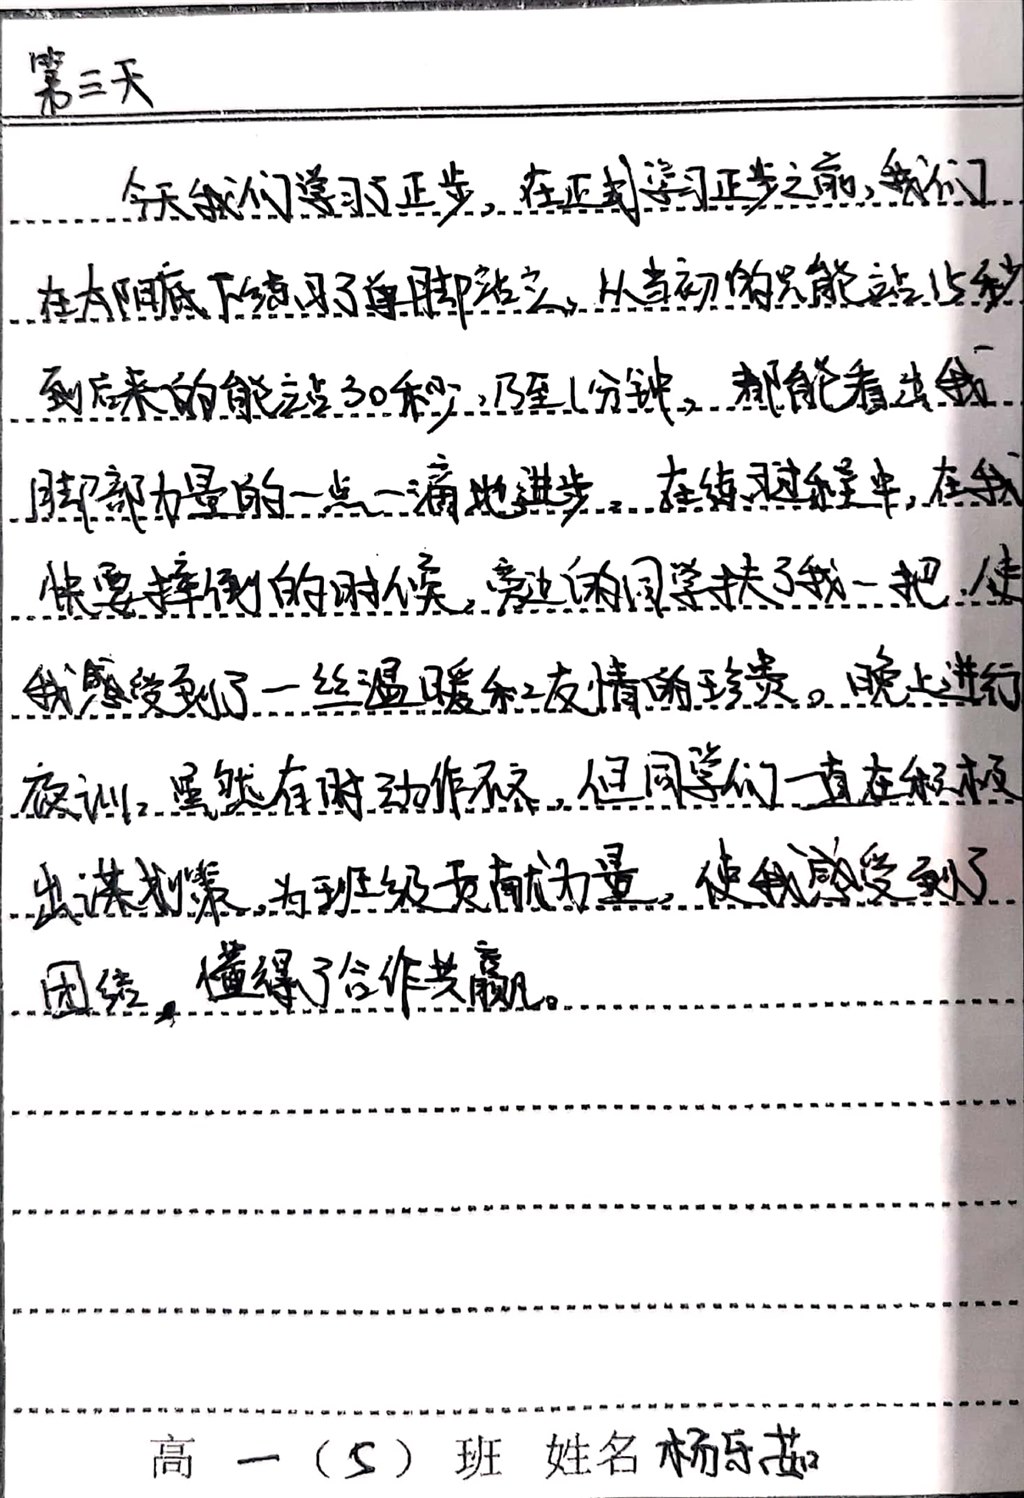 第三天
今天我们学习了正步，在正式学习正步之前，我们
在太阳底下练习了单脚站立。从当初的只能站15秒
到后来的能站30秒，乃至1分钟。都能看出我
脚部力量的一点一滴地进步。在练习过程中，在我
快要摔倒的时候，旁边的同学扶了我一把，使
我感受到了一丝温暖和友情的珍贵。晚上进行
夜训，虽然有时动作不齐，但同学们一直在积极
出谋划策，为班级贡献力量，使我感受到了
团结，懂得了合作共赢。
高一（5）班 姓名 杨乐茹